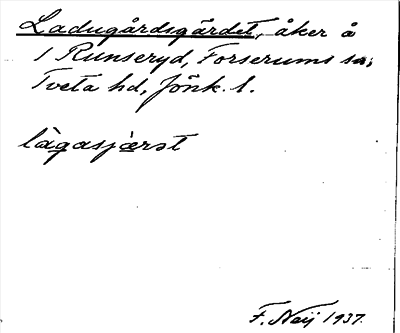 Ladugårdsgärdet, åker å
1 Runseryd, Forserums sn,
Tveta hd, Jönk. l.
làgasjærst
F. Neij 1937.